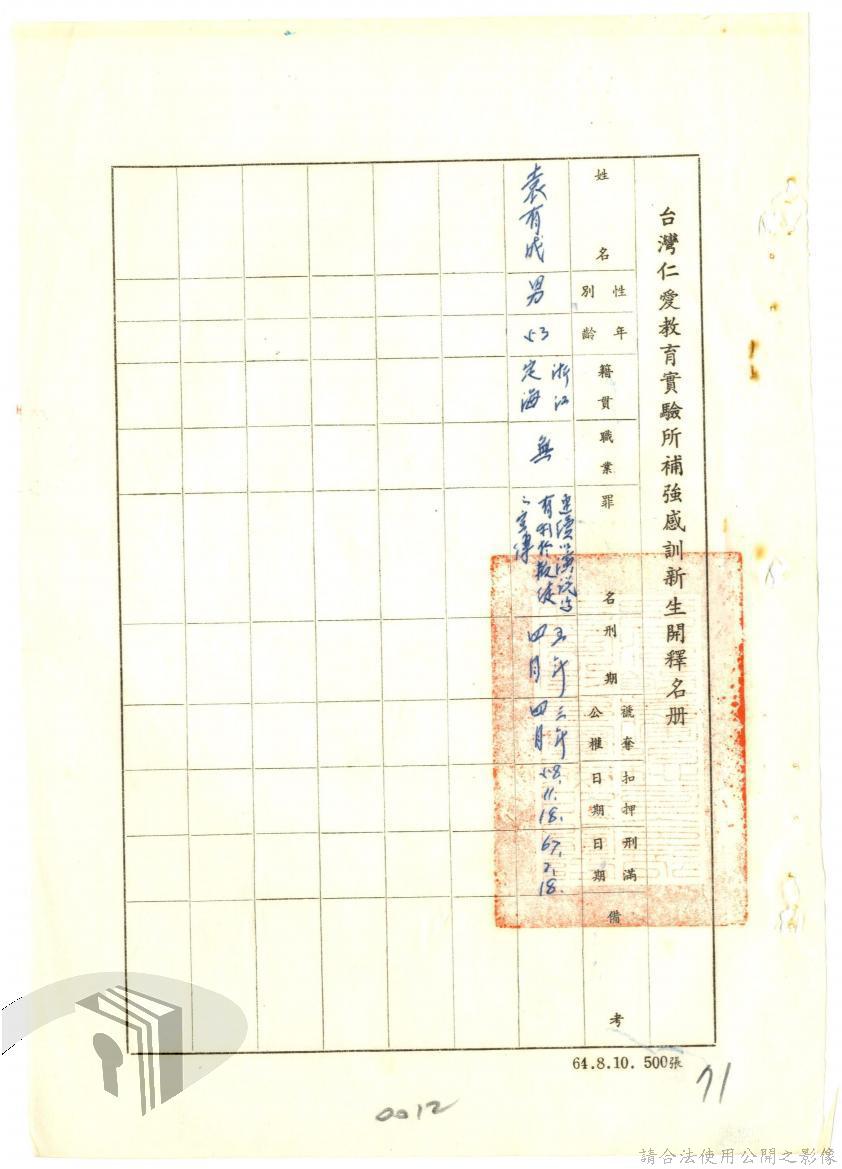 台灣仁愛教育實驗所補強感訓新生開釋名册
姓名
性別
年齡
籍貫
職業
罪名
刑期
褫奪公權
扣押日期
刑滿日期
備考
袁有成
男
53
浙江
定海
無
連續以演說為
有利於叛徒
之宣傳
五年
四月
三年
四月
58.
11.
18.
67.
18.
64.8.10. 500張
71
0012
請合法使用公開之影像